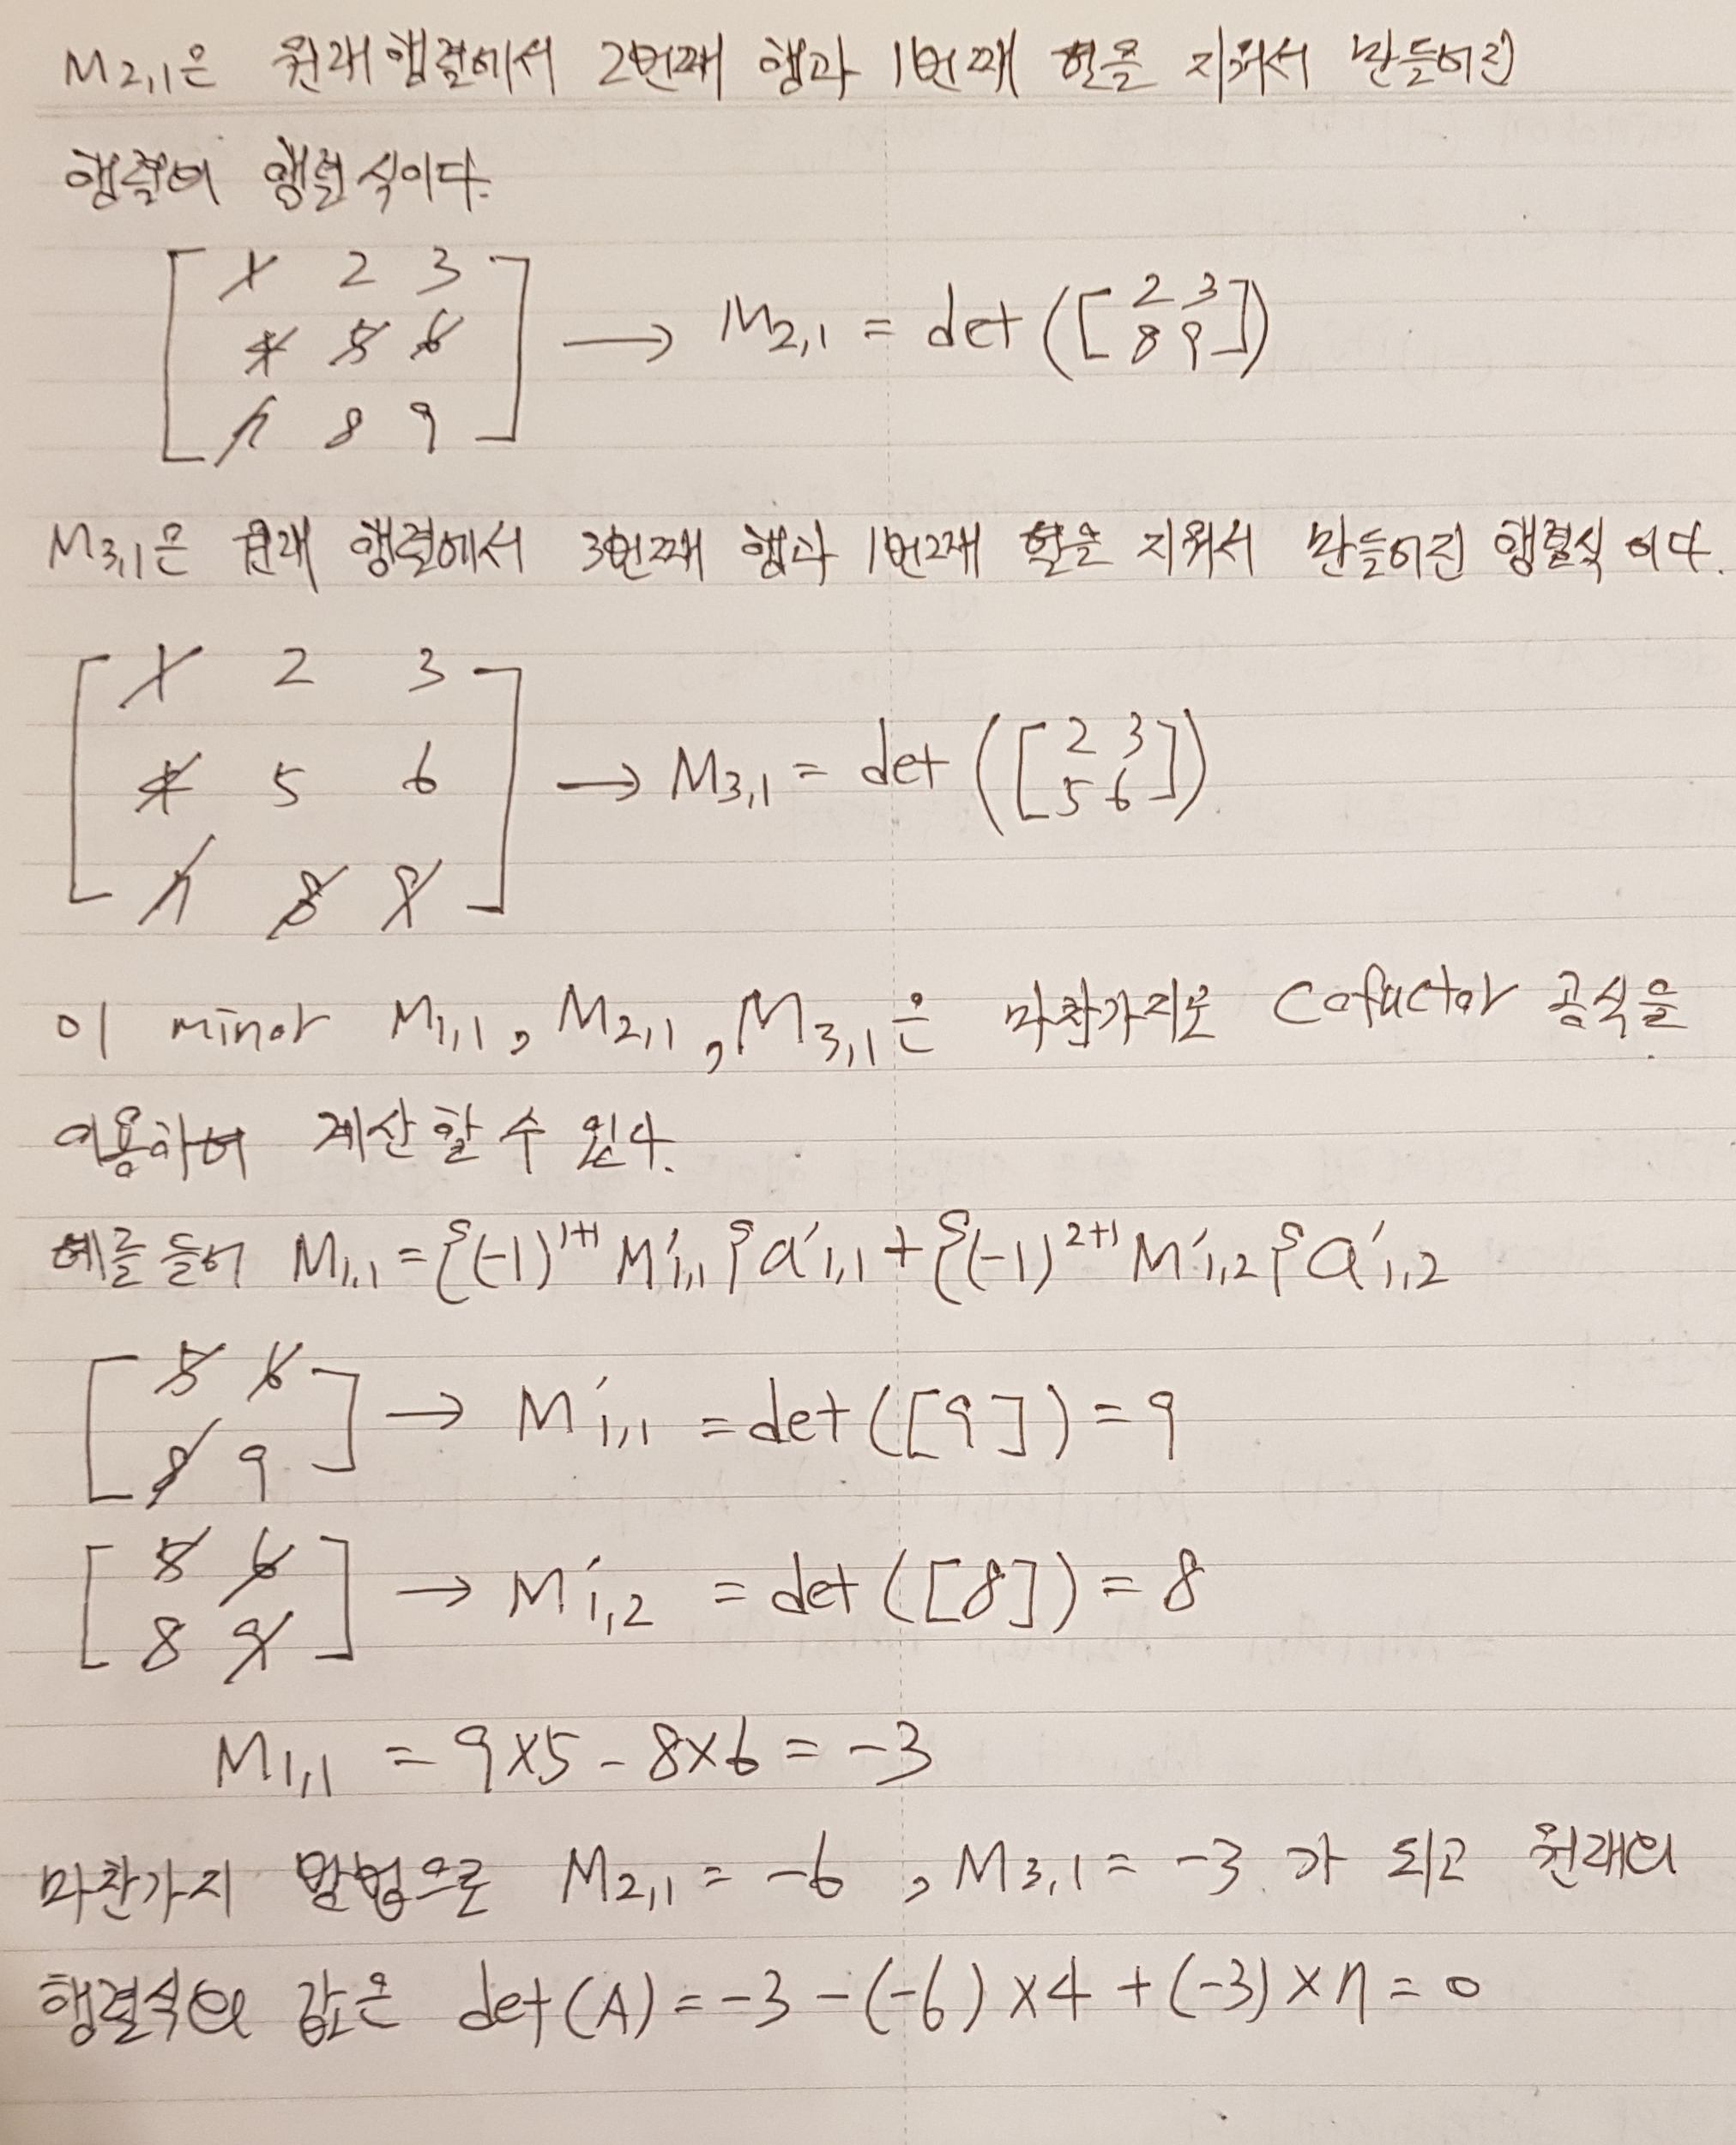 M2,1은 원래 행렬에서 2번째 행과 1번째 열을 지워서 만들어진
행렬의 행렬식이다.
[ 1 2 3
4 5 6 → M2,1 = det([ 2 3
8 9 ])
7 8 9 ]
M3,1은 원래 행렬에서 3번째 행과 1번째 열을 지워서 만들어진 행렬식이다.
[ 1 2 3
4 5 6 → M3,1 = det([ 2 3
5 6 ])
7 8 9 ]
이 minor M1,1, M2,1, M3,1은 마찬가지로 Cofactor 공식을
이용하여 계산할 수 있다.
예를 들어 M1,1 = {(-1)^1+1 M'1,1} a'1,1 + {(-1)^2+1 M'1,2} a'1,2
[ 5 6
8 9 ] → M'1,1 = det([9]) = 9
[ 5 6
8 9 ] → M'1,2 = det([8]) = 8
M1,1 = 9×5 - 8×6 = -3
마찬가지 방법으로 M2,1 = -6, M3,1 = -3 가 되고 원래의
행렬식의 값은 det(A) = -3 - (-6) × 4 + (-3) × 7 = 0